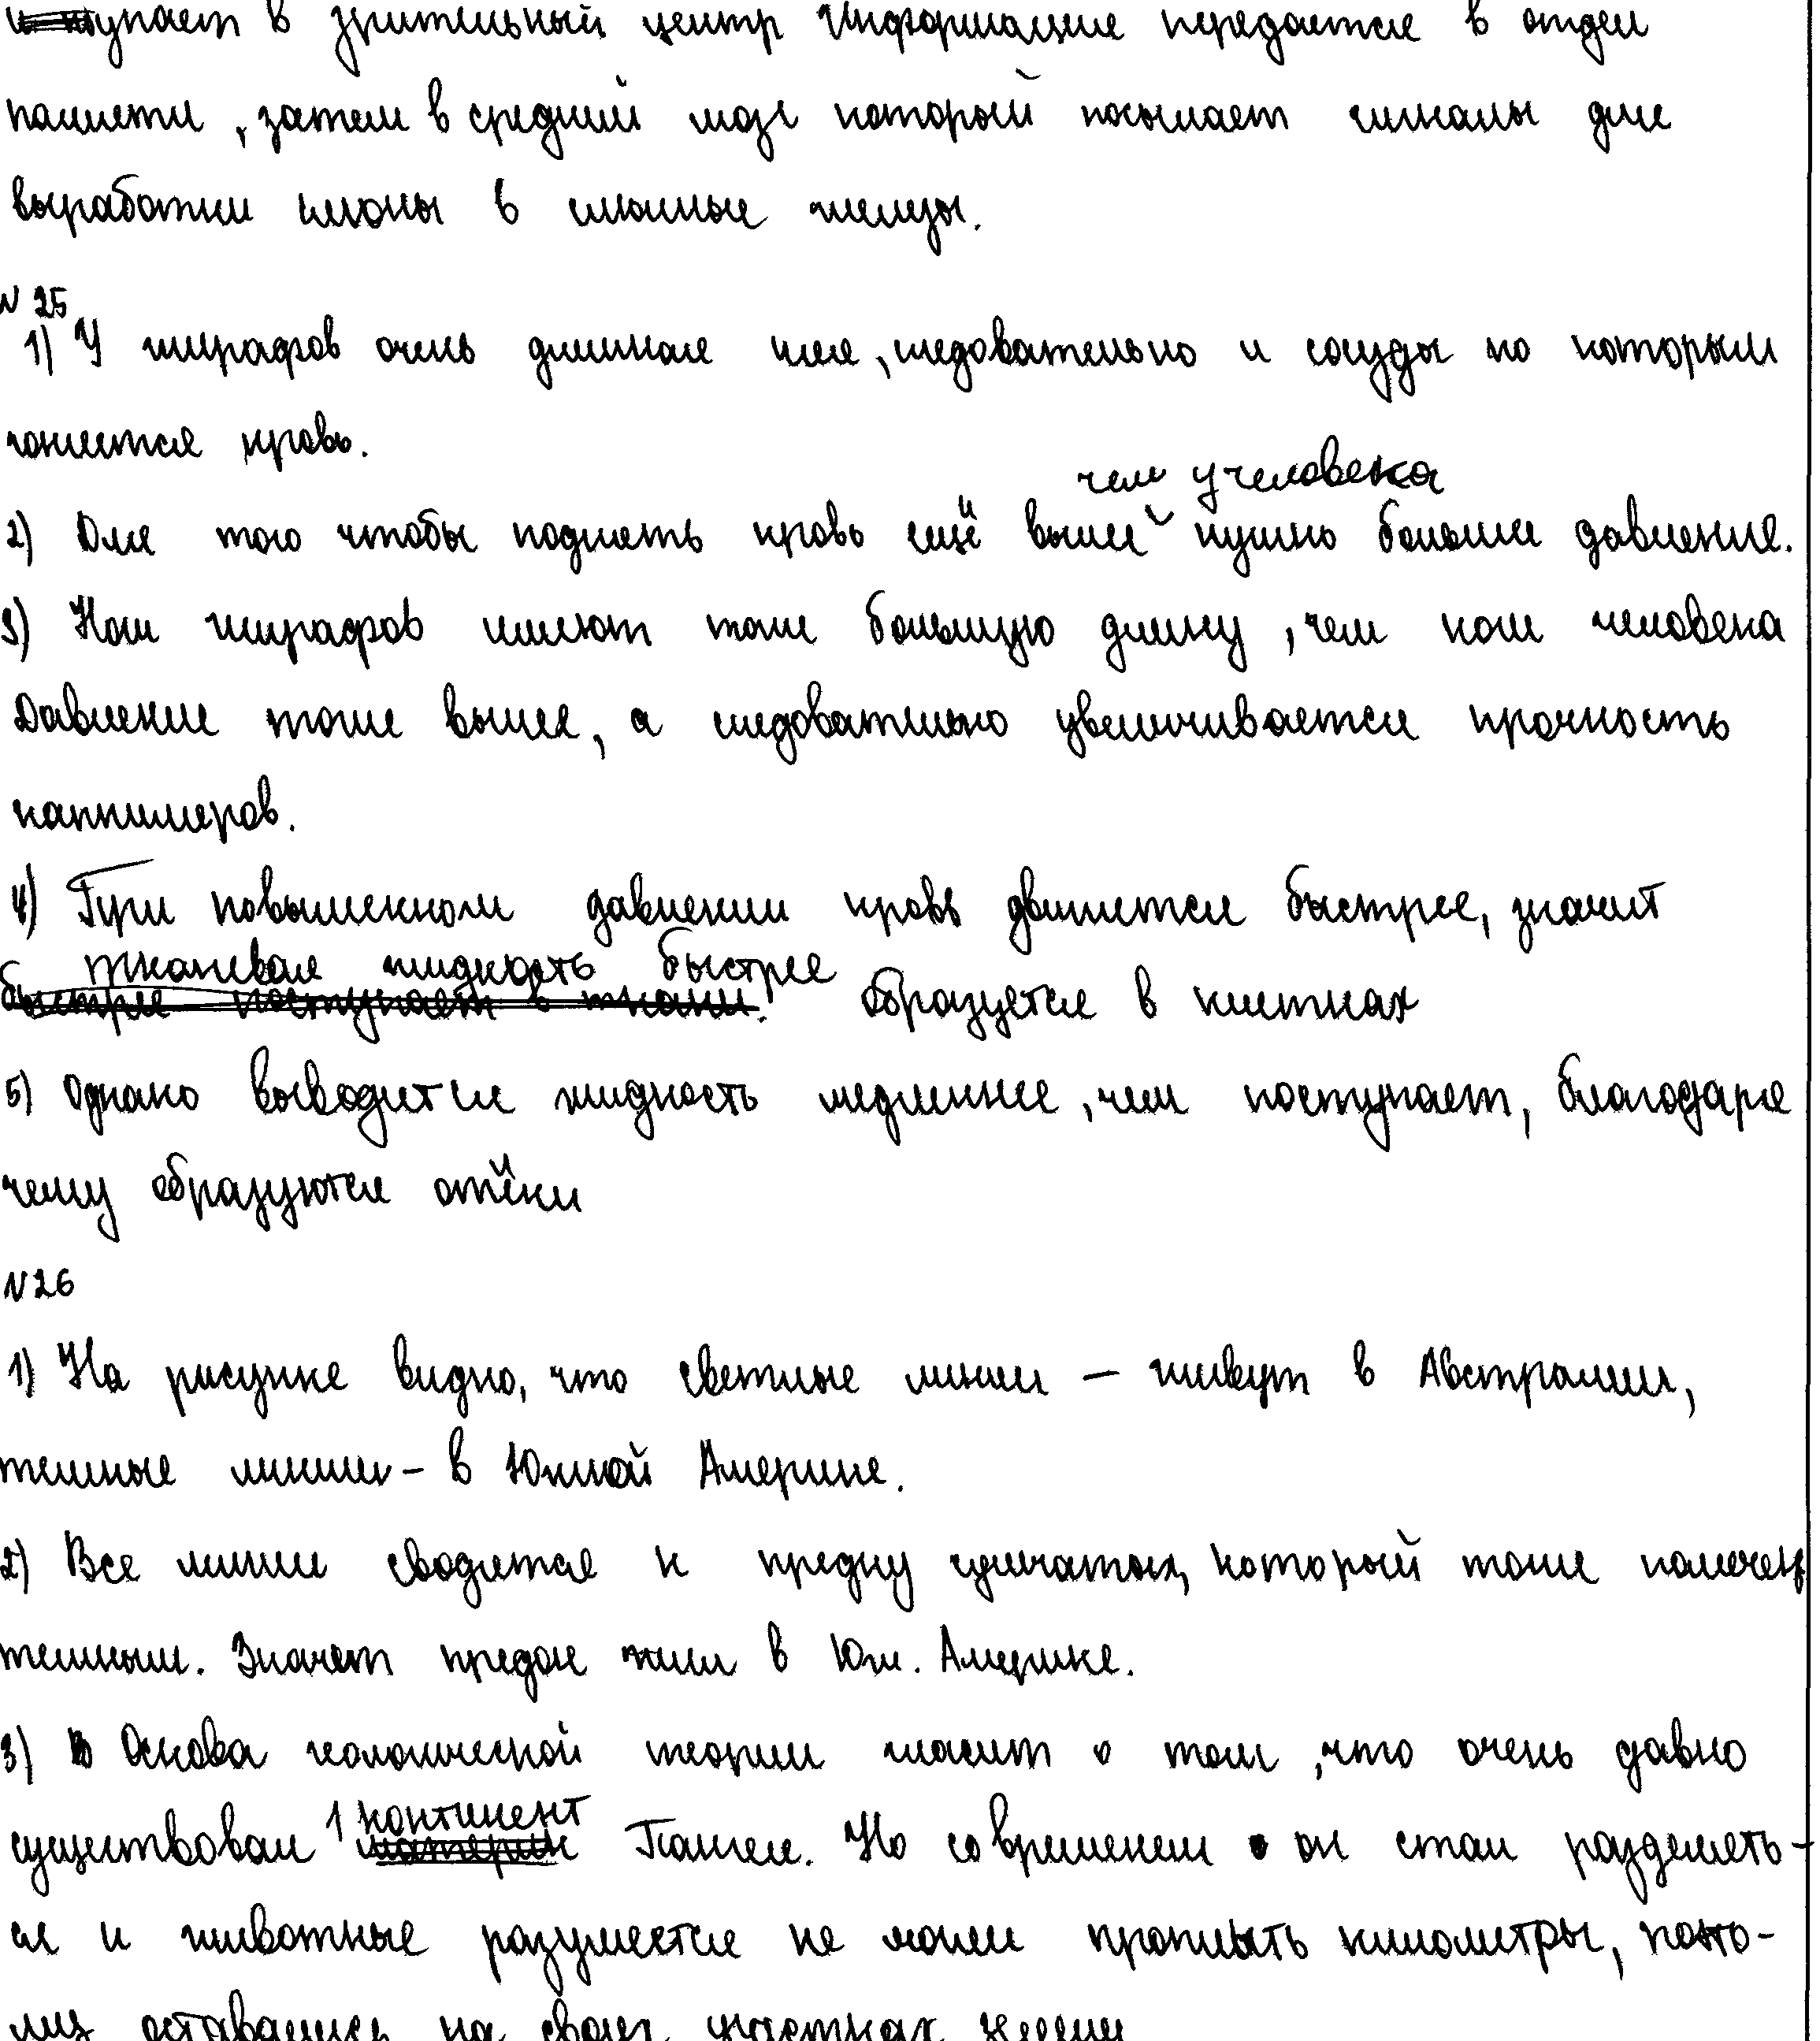 ступает в зрительный центр Информация передается в отдел
памяти, затем в средний мозг который посылает сигналы для
выработки слюны в слюнные железы.
N 25
1) У жирафов очень длинная шея, следовательно и сосуды по которым
гонится кровь.
чем у человека
2) Для того чтобы поднять кровь ещё выше нужно больше давление.
3) Ноги жирафов имеют тоже большую длину, чем ноги человека
Давление тоже выше, а следовательно увеличивается прочность
капилляров.
4) При повышенном давлении кровь движется быстрее, значит
тканевая жидкость быстрее
быстрее поступает в ткани. образуется в клетках
5) Однако выводится жидкость медленнее, чем поступает, благодаря
чему образуются отёки
N26
1) На рисунке видно, что светлые линии - живут в Австралии,
темные линии - в Южной Америке.
2) Все линии сводятся к предку сумчатых, который тоже помечен
темным. Значит предок жил в Юж. Америке.
3) Основа геологической теории гласит о том, что очень давно
континент
существовал 1 материк Пангея. Но со временем он стал разделять-
ся и животные разумеется не могли проплыть километры, поэто-
му оставались на своих участках земли